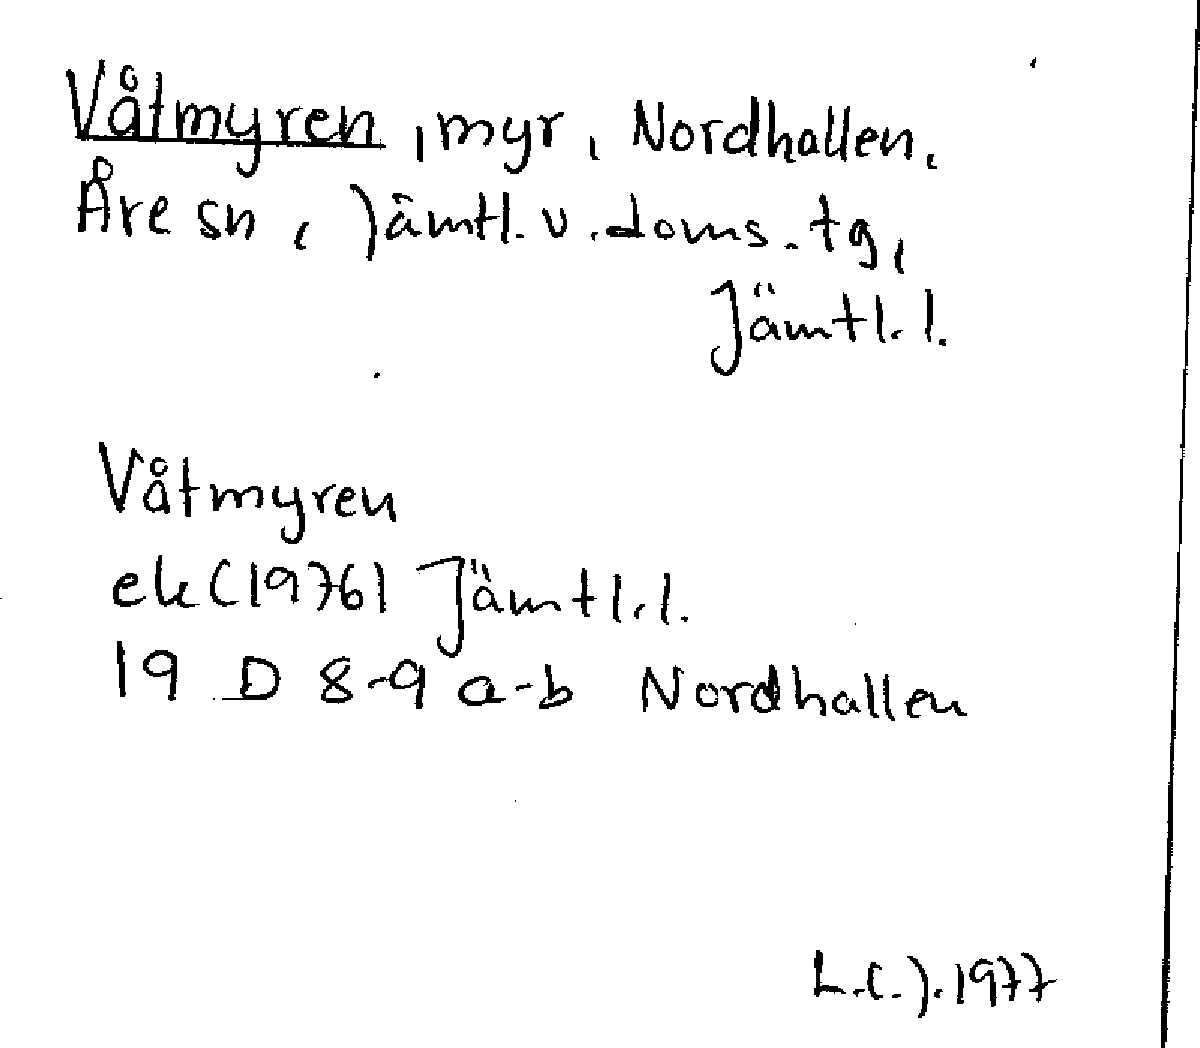 Våtmyren, myr, Nordhallen,
Åre sn, Jämtl. v. doms. tg,
Jämtl. l.
Våtmyren
ek (1976) Jämtl. l.
19 D 8-9 a-b Nordhallen
L.C.J. 1977